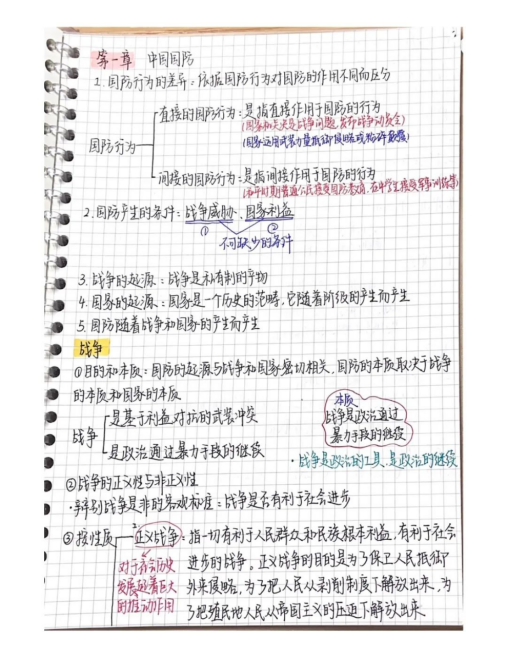 第一章 中国国防
1.国防行为的差异：依据国防行为对国防的作用不同而区分
国防行为
直接的国防行为：是指直接作用于国防的行为
(国家和关决是战争问题,发布战争动员令)
(国家运用武装力量抵御侵略或粉碎颠覆)
间接的国防行为：是指间接作用于国防的行为
(和平时期普通公民接受国防教育,在中学生接受军事训练等)
2.国防产生的条件：战争威胁、国家利益
① ②
不可缺少的条件
3.战争的起源：战争是私有制的产物
4.国家的起源：国家是一个历史的范畴,它随着阶级的产生而产生
5.国防随着战争和国家的产生而产生
战争
①目的和本质：国防的起源与战争和国家密切相关,国防的本质取决于战争
的本质和国家的本质
战争
是基于利益对抗的武装冲突
是政治通过暴力手段的继续
本质
战争是政治通过
暴力手段的继续
·战争是政治的工具,是政治的继续
②战争的正义性与非正义性
·辨别战争是非的客观标准：战争是否有利于社会进步
③按性质
正义战争：指一切有利于人民群众和民族根本利益,有利于社会
进步的战争。正义战争的目的是为了保卫人民抵御
外来侵略,为了把人民从剥削制度下解放出来,为
了把殖民地人民从帝国主义的压迫下解放出来.
对于社会历史
发展起着巨大
的推动作用